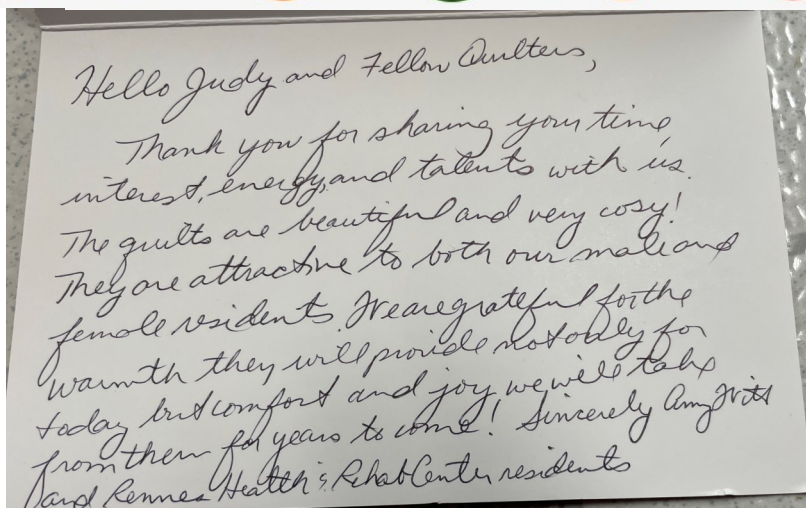 Hello Judy and Fellow Quilters,
Thank you for sharing your time,
interest, energy, and talents with us.
The quilts are beautiful and very cosy!
They are attractive to both our male and
female residents. We are grateful for the
warmth they will provide not only for
today but comfort and joy we will take
from them for years to come! Sincerely Amy
and Rennes Health & Rehab Center residents